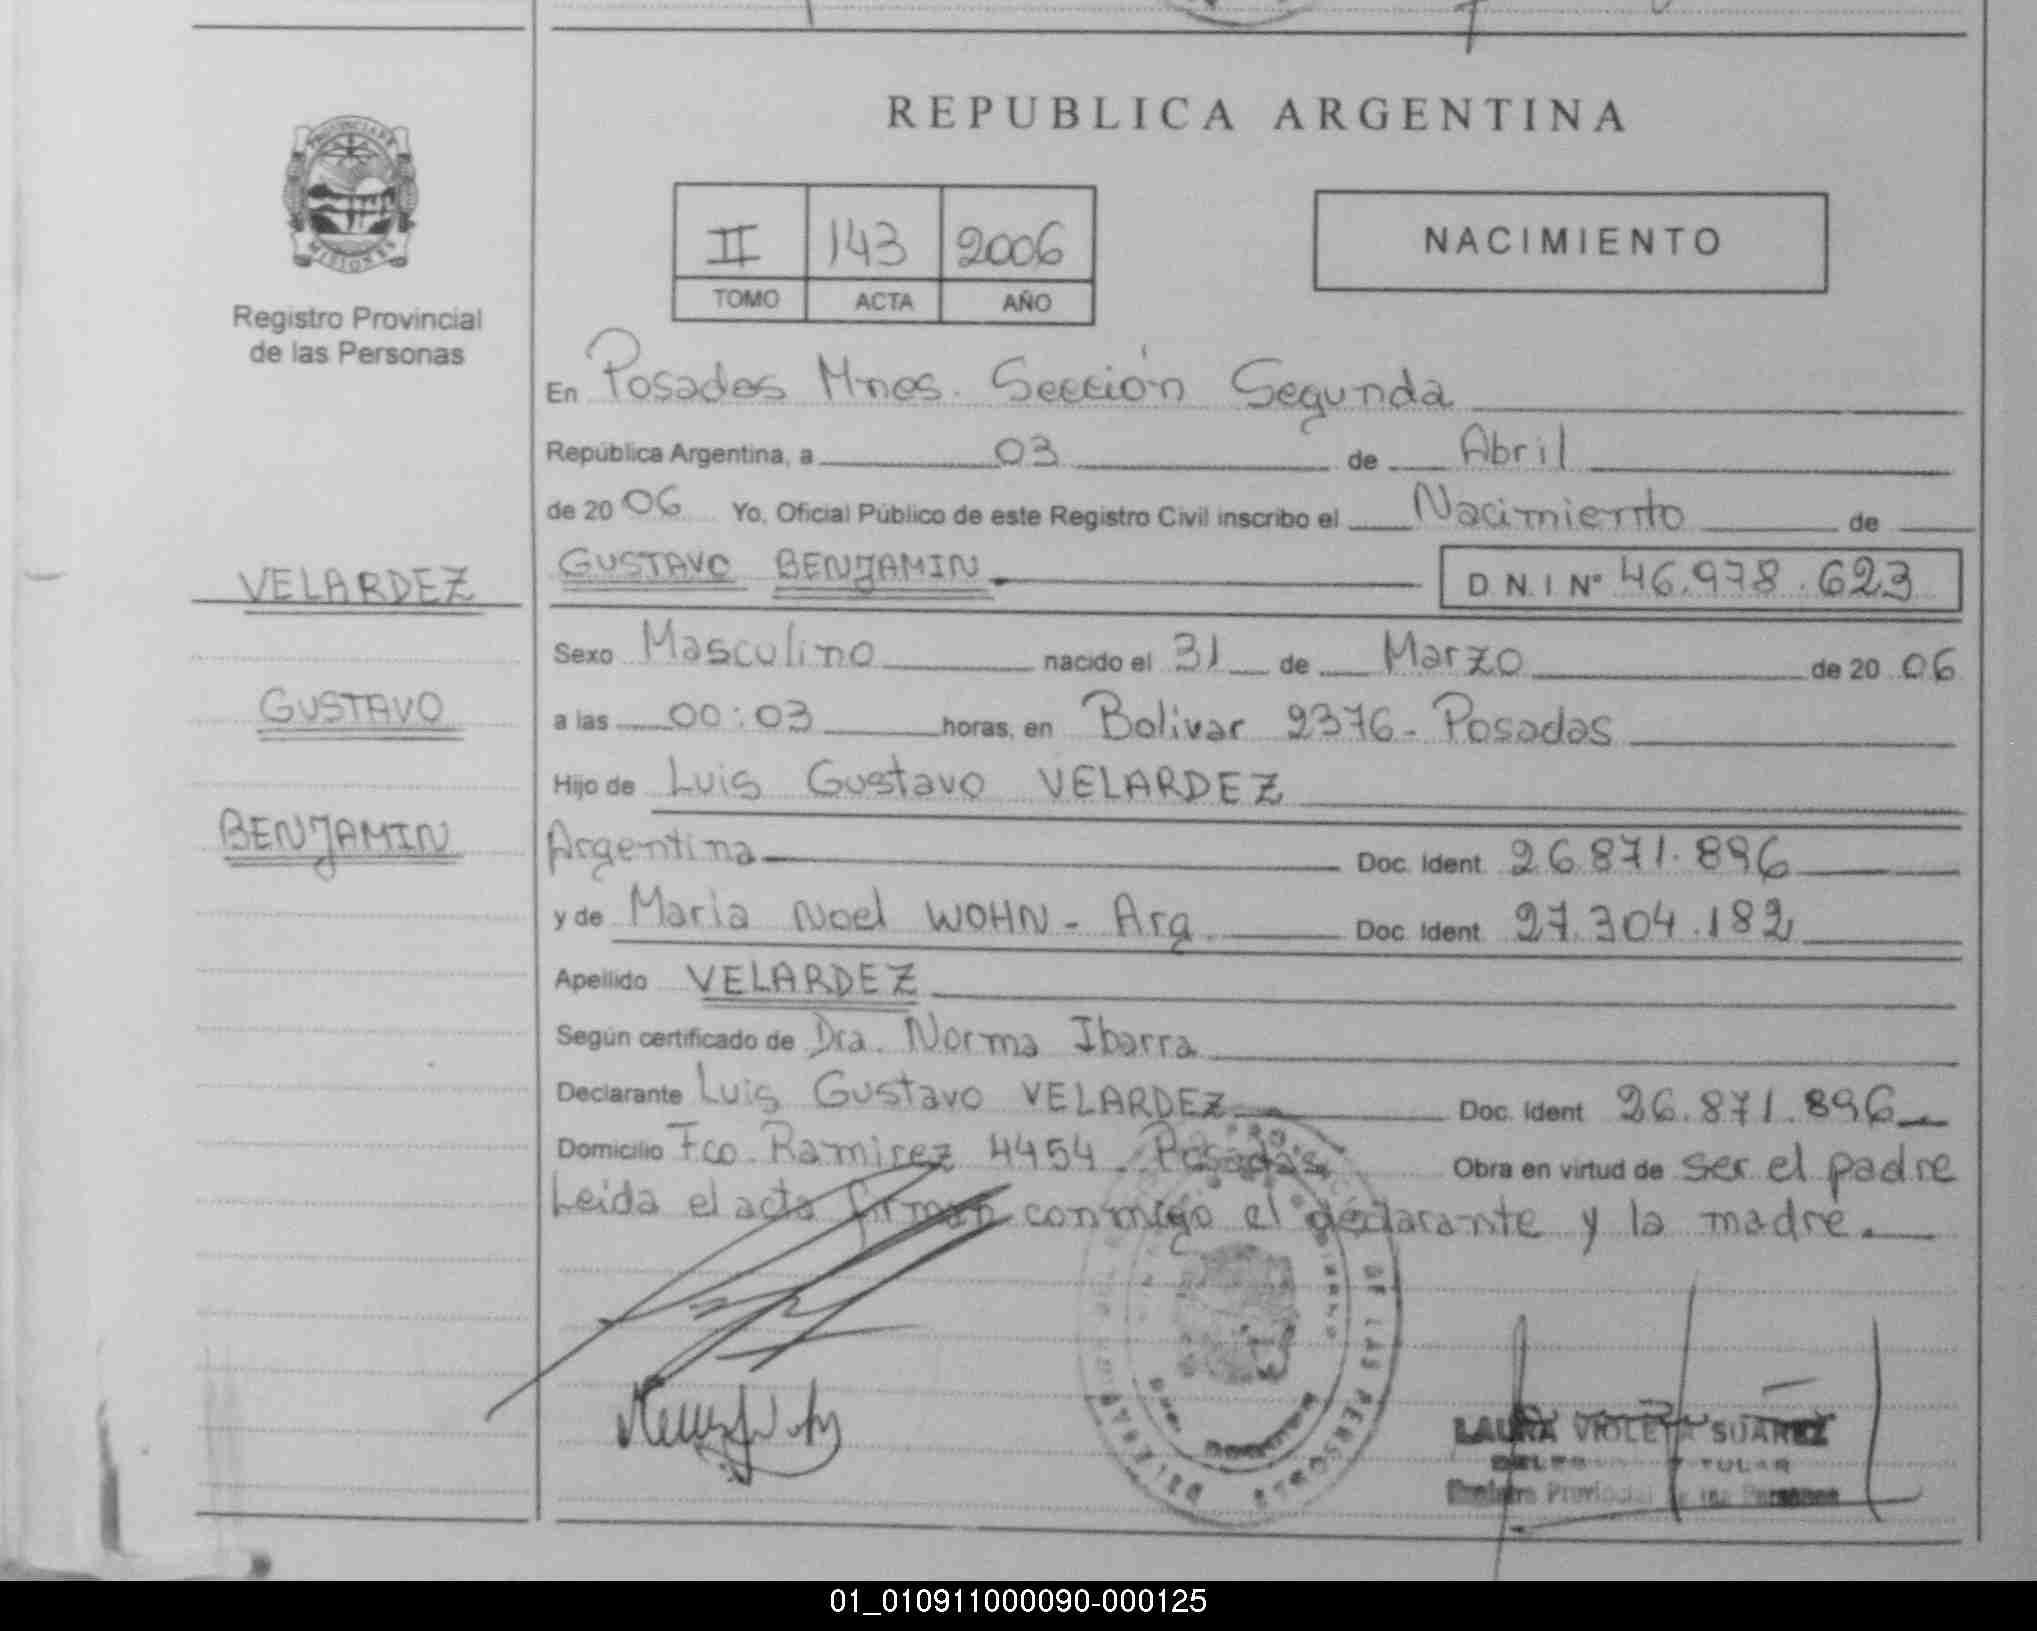 REPUBLICA ARGENTINA
PROVINCIA DE
MISIONES
Registro Provincial
de las Personas
II 143 2006
TOMO ACTA AÑO
NACIMIENTO
En Posadas Mnes. Sección Segunda
República Argentina, a 03 de Abril
de 2006 Yo, Oficial Público de este Registro Civil inscribo el Nacimiento de
VELARDEZ
GUSTAVO
BENJAMIN
GUSTAVO BENJAMIN D.N.I Nº 46.978.623
Sexo Masculino nacido el 31 de Marzo de 2006
a las 00:03 horas, en Bolivar 2376 - Posadas
Hijo de Luis Gustavo VELARDEZ
Argentina Doc. Ident. 26.871.896
y de Maria Noel WOHN - Arg Doc. Ident. 27.304.182
Apellido VELARDEZ
Según certificado de Dra. Norma Ibarra
Declarante Luis Gustavo VELARDEZ Doc. Ident. 26.871.896
Domicilio Fco. Ramirez 4454 - Posadas Obra en virtud de ser el padre
Leida el acta firman conmigo el declarante y la madre.
DE LAS PERSONAS
LAURA VIOLETA SUAREZ
Registro Provincial de las Personas
01_010911000090-000125